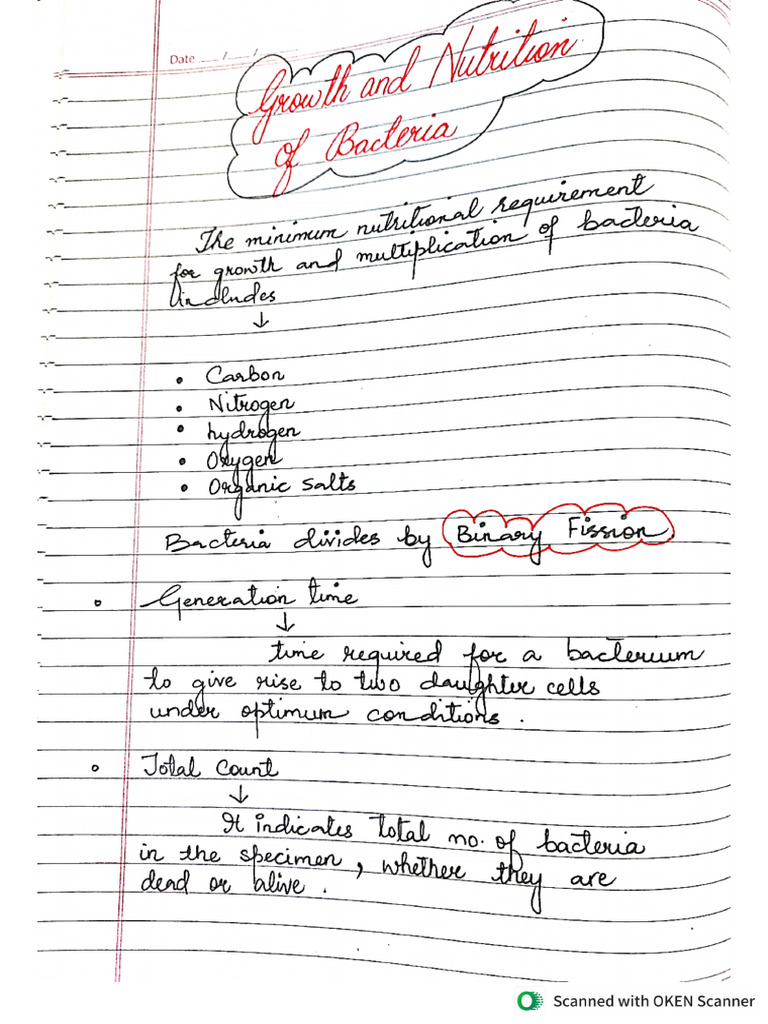 Date __/__/__
Growth and Nutrition
of Bacteria
The minimum nutritional requirement
for growth and multiplication of bacteria
includes
↓
• Carbon
• Nitrogen
• hydrogen
• Oxygen
• Organic salts
Bacteria divides by Binary Fission
∘ Generation time
↓
time required for a bacterium
to give rise to two daughter cells
under optimum conditions.
∘ Total Count
↓
It indicates total no. of bacteria
in the specimen, whether they are
dead or alive.
Scanned with OKEN Scanner